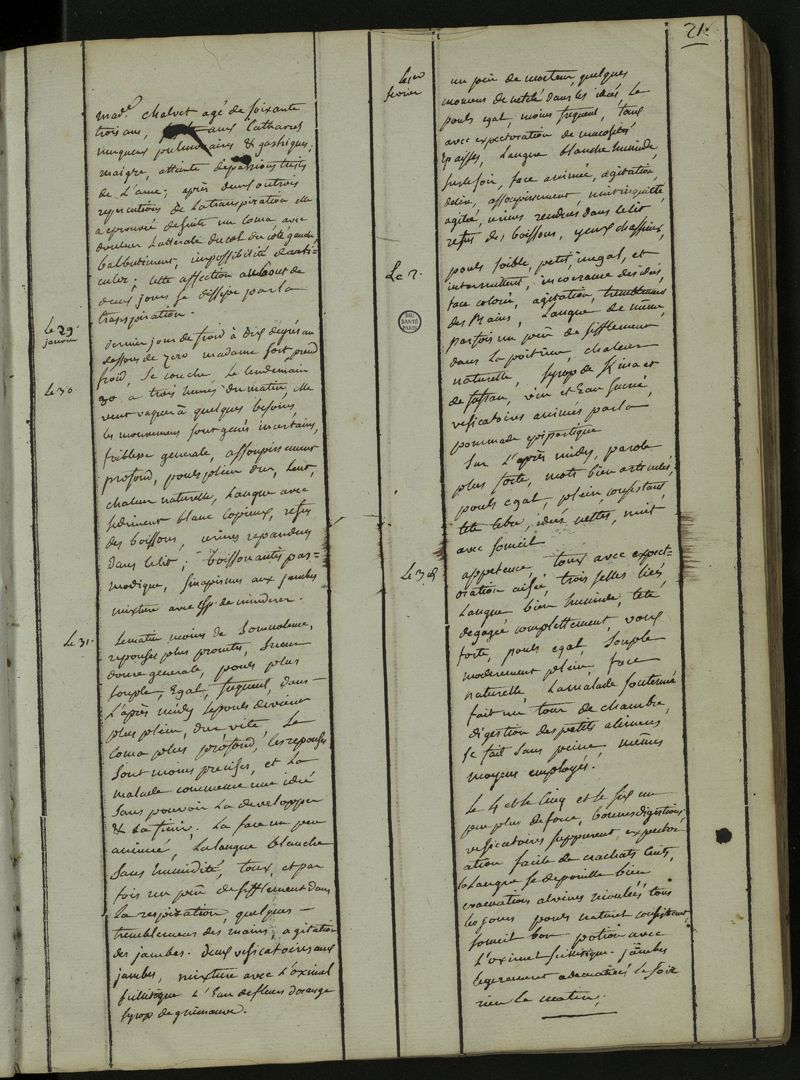 21
mad.e chalvet agé de soixante
trois ans, aux Catharres
muqueux pulmonaires & gastriques,
maigre, atteinte de passions tristes
de L'ame; après deux ou trois
repercutions de La transpiration elle
a eprouvé de suite un Coma avec
douleur Laterale du col du coté gauche,
balbutiment, impossibilité d'arti-
culer; cette affection au bout de
deux jours se dissipe par la
transpiration.
Le 29 janvier
dernier jour de froid à dix degrés au
dessous de zero madame sort prend
froid, Se couche, Le lendemain
Le 30
30 a trois heures du matin, elle
veut vaquer à quelques besoins,
les mouvemens sont genés incertains,
foiblesse generale, assoupissement
profond, pouls plein dur, Lent,
chaleur naturelle, Langue avec
sediment blanc Copieux, refus
des boissons, urines repandues
dans le lit; boisson antispas=
modique, sinapismes aux jambes
mixture avec esp. de minderer.
Le 31.
Le matin moins de Somnolence,
reponses plus promtes, Sueur
douce generale, pouls plus
souple, Egal, frequent, dans
L'après midy le pouls devient
plus plein, dur vite Le
Coma plus profond, les reponses
sont moins precises, et La
malade commence une idée
sans pouvoir La developper
& La finir. La face un peu
animée, La langue blanche
sans humidité, toux, et par
fois un peu de sifflement dans
La respiration, quelques
tremblemens des mains, agitation
des jambes. deux vesicatoires aux
jambes, mixture avec L'oximel
scillitique L'Eau de fleurs d'orange
syrop de guimauve.
Le 1er fevrier
un peu de moiteur, quelques
momens de netteté dans les idées Le
pouls egal, moins frequent, toux
avec expectoration de mucosités
epaisses, Langue blanche humide,
sur le soir, face animée, agitation,
delire, assoupissement, nuit inquiette,
agitée, urines rendues dans le lit,
refus des boissons, yeux chassieux,
Le 2.
pouls foible, petit, inegal, et
intermittent, incoerance des idées,
face colorée, agitation, tremblement
des Mains, Langue de même,
parfois un peu de sifflement
dans La poitrine, chaleur
naturelle, syrop de Kina et
de safran, vin et Eau sucrée,
vesicatoires animés par la
pommade epispastique
Sur L'après midy, parole
plus forte, mots bien articulés,
pouls egal, plein consistant,
tete libre, idées nettes, nuit
avec someil
Le 3
appetence, toux avec expect=
oration aisée, trois selles liées,
Langue bien humide, tete
degagée complettement, voix
forte, pouls egal, souple
moderement plein, face
naturelle, La malade soutenue
fait un tour de chambre,
digestion des petits alimens
se fait sans peine mêmes
moyens employés.
Le 4 et le cinq et le six un
peu plus de force, bonnes digestions
vesicatoires suppurent, expector
ation facile de crachats cuits,
la Langue se depouille bien
evacuations alvines moulées tous
les jours pouls naturel consistant,
someil bon potion avec
L'oximel scillitique. jambes
legerement oedematiées le soir
rien le matin.
BIU SANTÉ PARIS